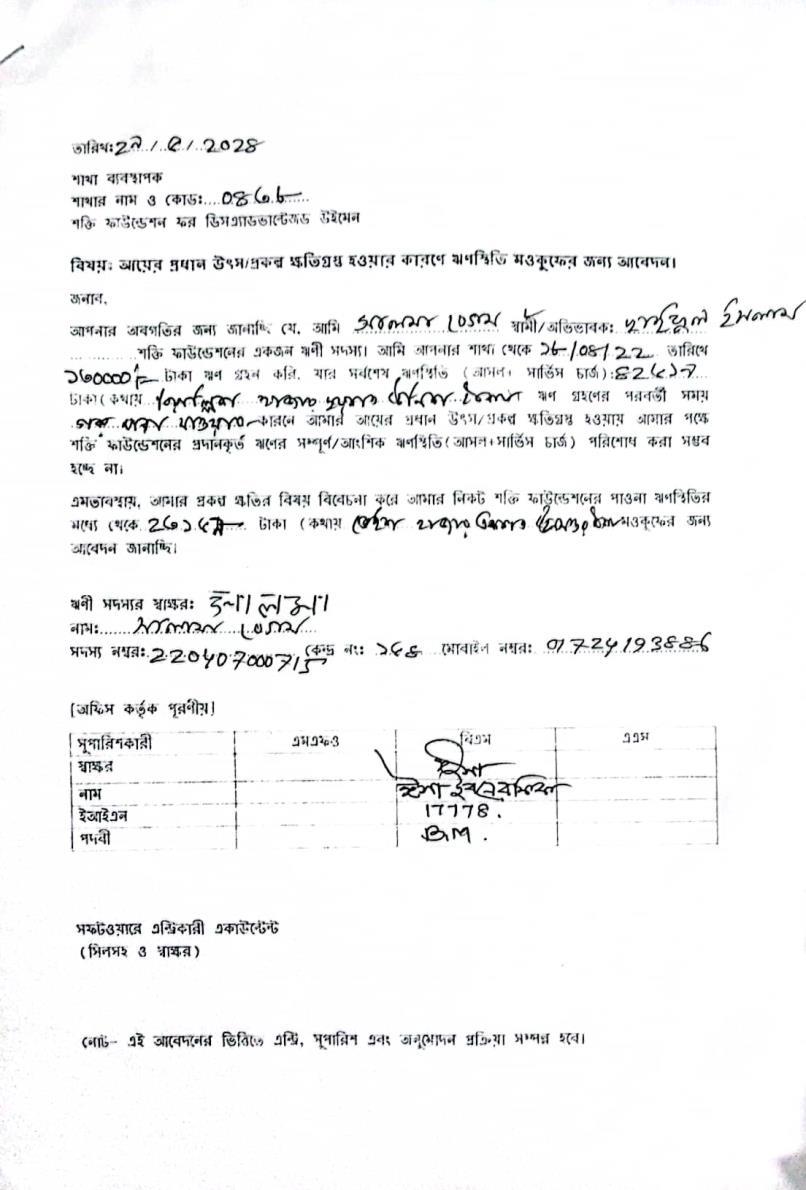 তারিখঃ ২৯/৫/২০২৪
শাখা ব্যবস্থাপক
শাখার নাম ও কোডঃ ০৪৬৮
শক্তি ফাউন্ডেশন ফর ডিসএ্যাডভান্টেজড উইমেন
বিষয়ঃ আয়ের প্রধান উৎস/প্রকল্প ক্ষতিগ্রস্থ হওয়ার কারণে ঋণস্থিতি মওকুফের জন্য আবেদন।
জনাব,
আপনার অবগতির জন্য জানাচ্ছি যে, আমি সালমা বেগম স্বামী/অভিভাবকঃ ইসলাম
শক্তি ফাউন্ডেশনের একজন ঋণী সদস্য। আমি আপনার শাখা থেকে ১৮/০৪/২২ তারিখে
১৬০০০০/= টাকা ঋণ গ্রহন করি, যার সর্বশেষ ঋণস্থিতি (আসল+ সার্ভিস চার্জ):
টাকা (কথায় হাজার টাকা ঋণ গ্রহণের পরবর্তী সময়
যাওয়ার কারনে আমার আয়ের প্রধান উৎস/প্রকল্প ক্ষতিগ্রস্থ হওয়ায় আমার পক্ষে
শক্তি ফাউন্ডেশনের প্রদানকৃত ঋণের সম্পূর্ণ/আংশিক ঋণস্থিতি(আসল+সার্ভিস চার্জ) পরিশোধ করা সম্ভব
হচ্ছে না।
এমতাবস্থায়, আমার প্রকল্প ক্ষতির বিষয় বিবেচনা করে আমার নিকট শক্তি ফাউন্ডেশনের পাওনা ঋণস্থিতির
মধ্যে থেকে টাকা (কথায় হাজার মওকুফের জন্য
আবেদন জানাচ্ছি।
ঋণী সদস্যর স্বাক্ষরঃ
নামঃ সালমা বেগম
সদস্য নম্বরঃ 220407000715 কেন্দ্র নংঃ মোবাইল নম্বরঃ 01724193886
[অফিস কর্তৃক পূরণীয়]
সুপারিশকারী এমএফও বিএম এএম
স্বাক্ষর
নাম
ইআইএন 17778.
পদবী BM.
সফটওয়ারে এন্ট্রিকারী একাউন্টেন্ট
(সিলসহ ও স্বাক্ষর)
নোট- এই আবেদনের ভিত্তিতে এন্ট্রি, সুপারিশ এবং অনুমোদন প্রক্রিয়া সম্পন্ন হবে।